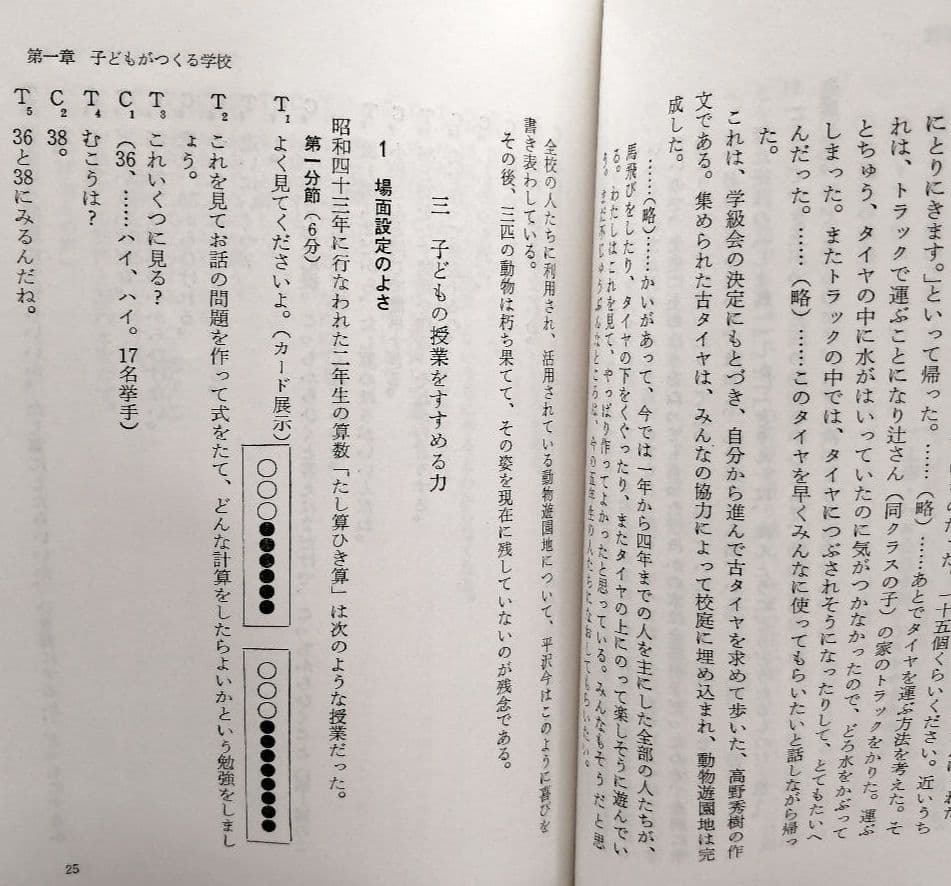 にとりにきます。」といって帰った。……（略）……あとでタイヤを運ぶ方法を考えた。そ
れは、トラックで運ぶことになり辻さん（同クラスの子）の家のトラックをかりた。運ぶ
とちゅう、タイヤの中に水がはいっていたのに気がつかなかったので、どろ水をかぶって
しまった。またトラックの中では、タイヤにつぶされそうになったりして、とてもたいへ
んだった。……（略）……このタイヤを早くみんなに使ってもらいたいと話しながら帰っ
た。
これは、学級会の決定にもとづき、自分から進んで古タイヤを求めて歩いた、高野秀樹の作
文である。集められた古タイヤは、みんなの協力によって校庭に埋め込まれ、動物遊園地は完
成した。
……（略）……かいがあって、今では一年から四年までの人を主にした全部の人たちが、
馬飛びをしたり、タイヤの下をくぐったり、またタイヤの上にのって楽しそうに遊んでい
る。わたしはこれを見て、やっぱり作ってよかったと思っている。みんなもそうだと思
第一章 子どもがつくる学校
全校の人たちに利用され、活用されている動物遊園地について、平沢今はこのように喜びを
書き表わしている。
その後、三匹の動物は朽ち果てて、その姿を現在に残していないのが残念である。
三 子どもの授業をすすめる力
1 場面設定のよさ
昭和四十三年に行なわれた二年生の算数「たし算ひき算」は次のような授業だった。
第一分節（6分）
T1 よく見てくださいよ。（カード展示） ○○○●●●●●● ○○○●●●●●●●●
T2 これを見てお話の問題を作って式をたて、どんな計算をしたらよいかという勉強をしまし
ょう。
T3 これいくつに見る？
C1 （36、……ハイ、ハイ。17名挙手）
T4 むこうは？
C2 38。
T5 36と38にみるんだね。
25